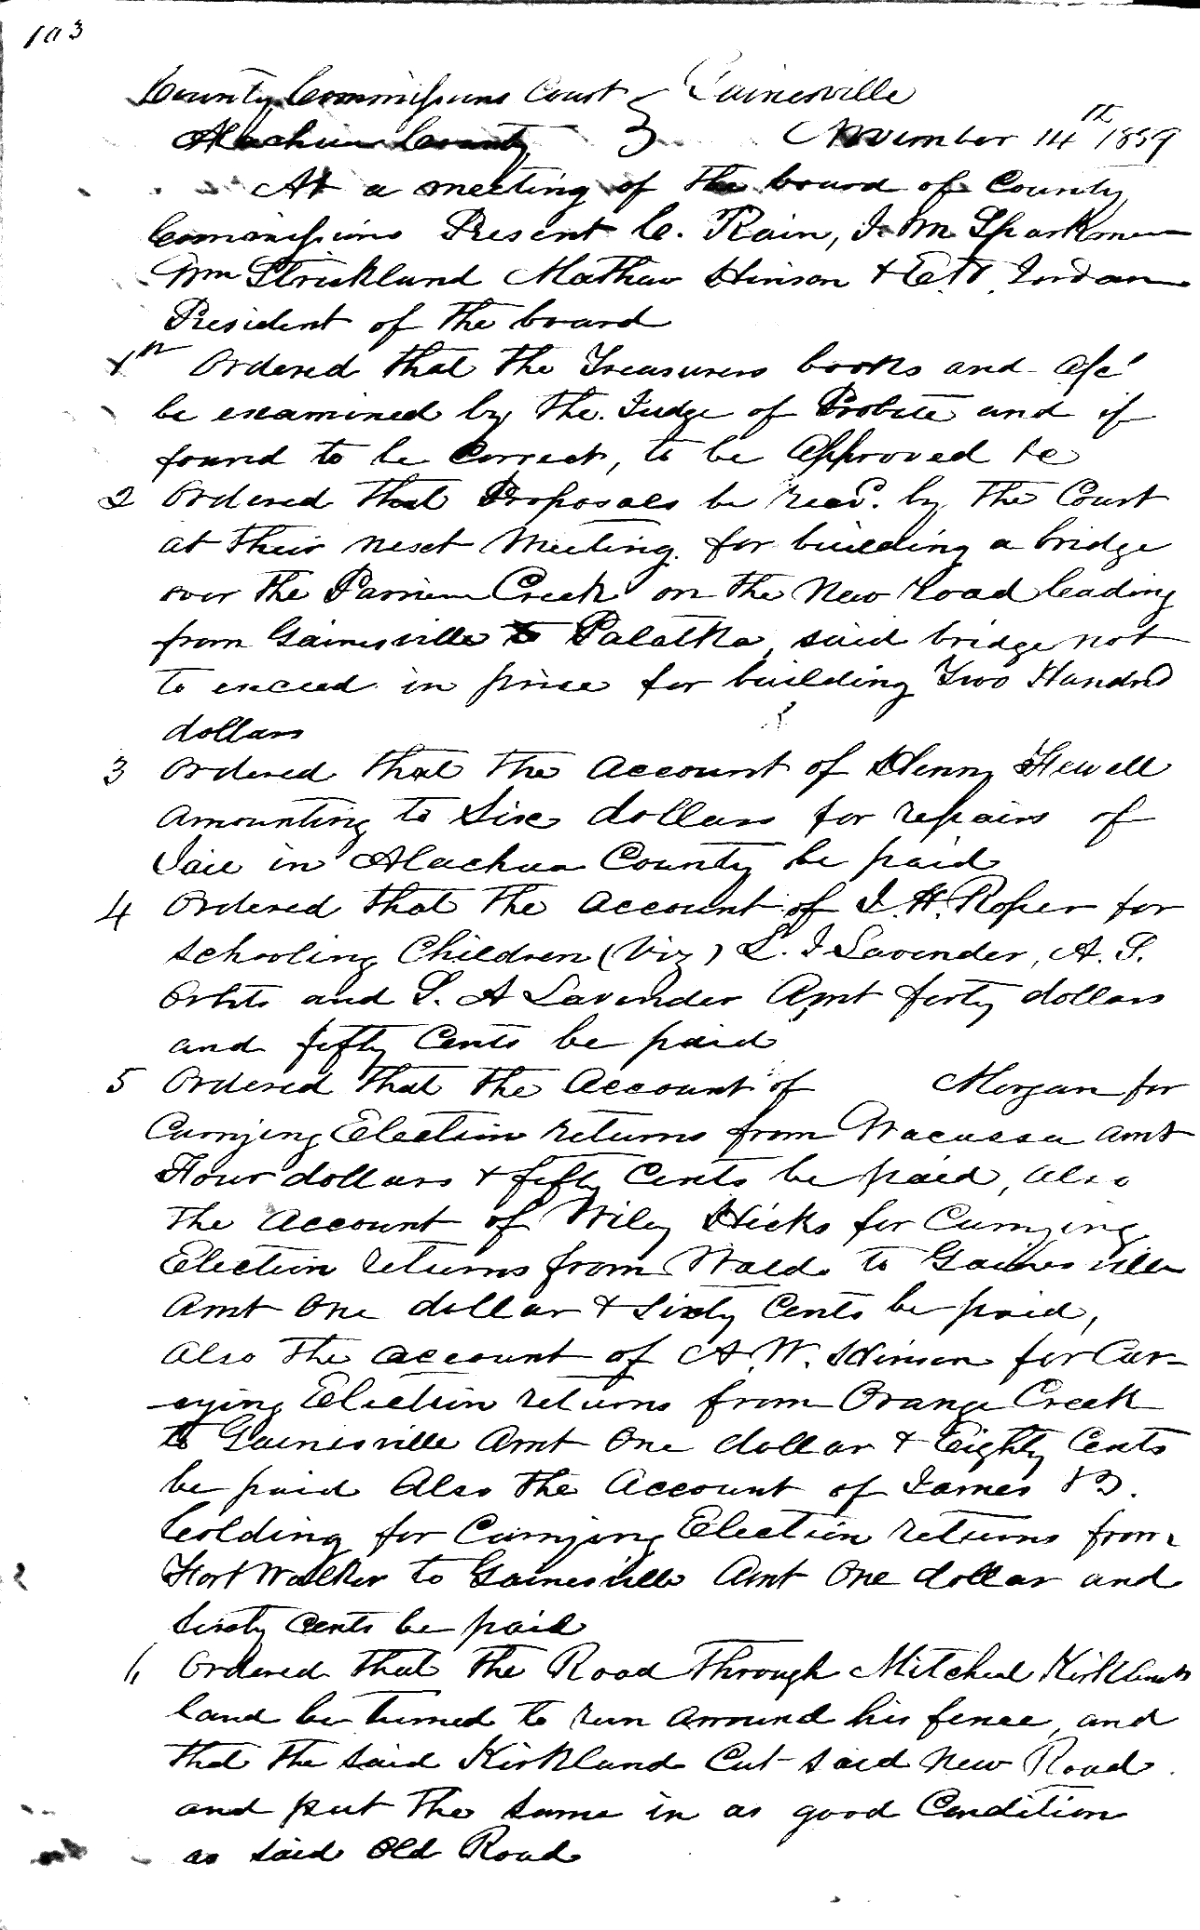 103
County Commissions Court } Gainesville
Alachua County } November 14th 1859
At a meeting of the board of County
Commissions Present C. Rain, J. M. Sparkman
Wm Strickland Mathew Hinson & E. D. Jordan
President of the board
1st Ordered that the Treasurers books and a/c
be examined by the Judge of Probate and if
found to be correct, to be approved &c
2 Ordered that Proposals be recd. by the Court
at their next Meeting for building a bridge
over the Parrien Creek on the New road leading
from Gainesville to Palatka, said bridge not
to exceed in price for building Two Hundred
dollars
3 Ordered that the account of Henry Hewell
amounting to Six dollars for repairs of
Jail in Alachua County be paid
4 Ordered that the account of J. H. Roper for
schooling Children (Viz) L. J Lavender, A. P.
and S. A Lavender Amt forty dollars
and fifty Cents be paid
5 Ordered that the account of Morgan for
Carrying Election returns from Wacassa amt
Four dollars & fifty Cents be paid, also
the account of Wiley Hicks for Carrying
Election returns from Waldo to Gainesville
Amt One dollar & Sixty Cents be paid,
also the account of A. W. Hinson for Car-
-rying Election returns from Orange Creek
to Gainesville Amt One dollar & Eighty Cents
be paid Also the account of James B.
Colding for Carrying Election returns from
Fort Walker to Gainesville Amt One dollar and
Sixty cents be paid
6 Ordered that the Road Through Mitchel Kirklands
land be turned to run around his fence, and
that the said Kirkland Cut said New Road
and put the same in as good Condition
as said Old Road